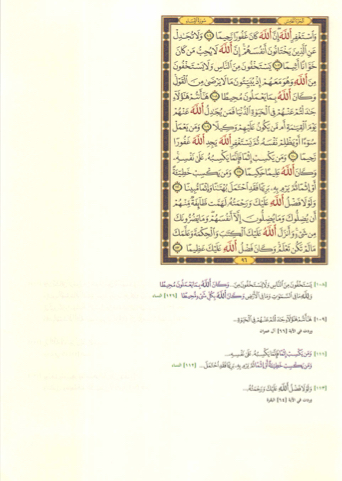 وَٱسْتَغْفِرِ ٱللَّهَ إِنَّ ٱللَّهَ كَانَ غَفُورًا رَّحِيمًا ۝ وَلَا تُجَٰدِلْ
عَنِ ٱلَّذِينَ يَخْتَانُونَ أَنفُسَهُمْ إِنَّ ٱللَّهَ لَا يُحِبُّ مَن كَانَ
خَوَّانًا أَثِيمًا ۝ يَسْتَخْفُونَ مِنَ ٱلنَّاسِ وَلَا يَسْتَخْفُونَ
مِنَ ٱللَّهِ وَهُوَ مَعَهُمْ إِذْ يُبَيِّتُونَ مَا لَا يَرْضَىٰ مِنَ ٱلْقَوْلِ
وَكَانَ ٱللَّهُ بِمَا يَعْمَلُونَ مُحِيطًا ۝ هَٰٓأَنتُمْ هَٰٓؤُلَآءِ
جَٰدَلْتُمْ عَنْهُمْ فِى ٱلْحَيَوٰةِ ٱلدُّنْيَا فَمَن يُجَٰدِلُ ٱللَّهَ عَنْهُمْ
يَوْمَ ٱلْقِيَٰمَةِ أَم مَّن يَكُونُ عَلَيْهِمْ وَكِيلًا ۝ وَمَن يَعْمَلْ
سُوٓءًا أَوْ يَظْلِمْ نَفْسَهُۥ ثُمَّ يَسْتَغْفِرِ ٱللَّهَ يَجِدِ ٱللَّهَ غَفُورًا
رَّحِيمًا ۝ وَمَن يَكْسِبْ إِثْمًا فَإِنَّمَا يَكْسِبُهُۥ عَلَىٰ نَفْسِهِۦ
وَكَانَ ٱللَّهُ عَلِيمًا حَكِيمًا ۝ وَمَن يَكْسِبْ خَطِيٓـَٔةً
أَوْ إِثْمًا ثُمَّ يَرْمِ بِهِۦ بَرِيٓـًٔا فَقَدِ ٱحْتَمَلَ بُهْتَٰنًا وَإِثْمًا مُّبِينًا ۝
وَلَوْلَا فَضْلُ ٱللَّهِ عَلَيْكَ وَرَحْمَتُهُۥ لَهَمَّت طَّآئِفَةٌ مِّنْهُمْ
أَن يُضِلُّوكَ وَمَا يُضِلُّونَ إِلَّآ أَنفُسَهُمْ وَمَا يَضُرُّونَكَ
مِن شَىْءٍ وَأَنزَلَ ٱللَّهُ عَلَيْكَ ٱلْكِتَٰبَ وَٱلْحِكْمَةَ وَعَلَّمَكَ
مَا لَمْ تَكُن تَعْلَمُ وَكَانَ فَضْلُ ٱللَّهِ عَلَيْكَ عَظِيمًا ۝
٩٦
[١٠٨] يَسْتَخْفُونَ مِنَ ٱلنَّاسِ وَلَا يَسْتَخْفُونَ مِنَ... وَكَانَ ٱللَّهُ بِمَا يَعْمَلُونَ مُحِيطًا
وَلِلَّهِ مَا فِى ٱلسَّمَٰوَٰتِ وَمَا فِى ٱلْأَرْضِ وَكَانَ ٱللَّهُ بِكُلِّ شَىْءٍ مُّحِيطًا [١٢٦] النساء
[١٠٩] هَٰٓأَنتُمْ هَٰٓؤُلَآءِ جَٰدَلْتُمْ عَنْهُمْ فِى ٱلْحَيَوٰةِ...
وردت في الآية [٦٦] آل عمران
[١١١] وَمَن يَكْسِبْ إِثْمًا فَإِنَّمَا يَكْسِبُهُۥ عَلَىٰ نَفْسِهِۦ...
وَمَن يَكْسِبْ خَطِيٓـَٔةً أَوْ إِثْمًا ثُمَّ يَرْمِ بِهِۦ بَرِيٓـًٔا فَقَدِ ٱحْتَمَلَ... [١١٢] النساء
[١١٣] وَلَوْلَا فَضْلُ ٱللَّهِ عَلَيْكَ وَرَحْمَتُهُۥ...
وردت في الآية [٦٤] البقرة